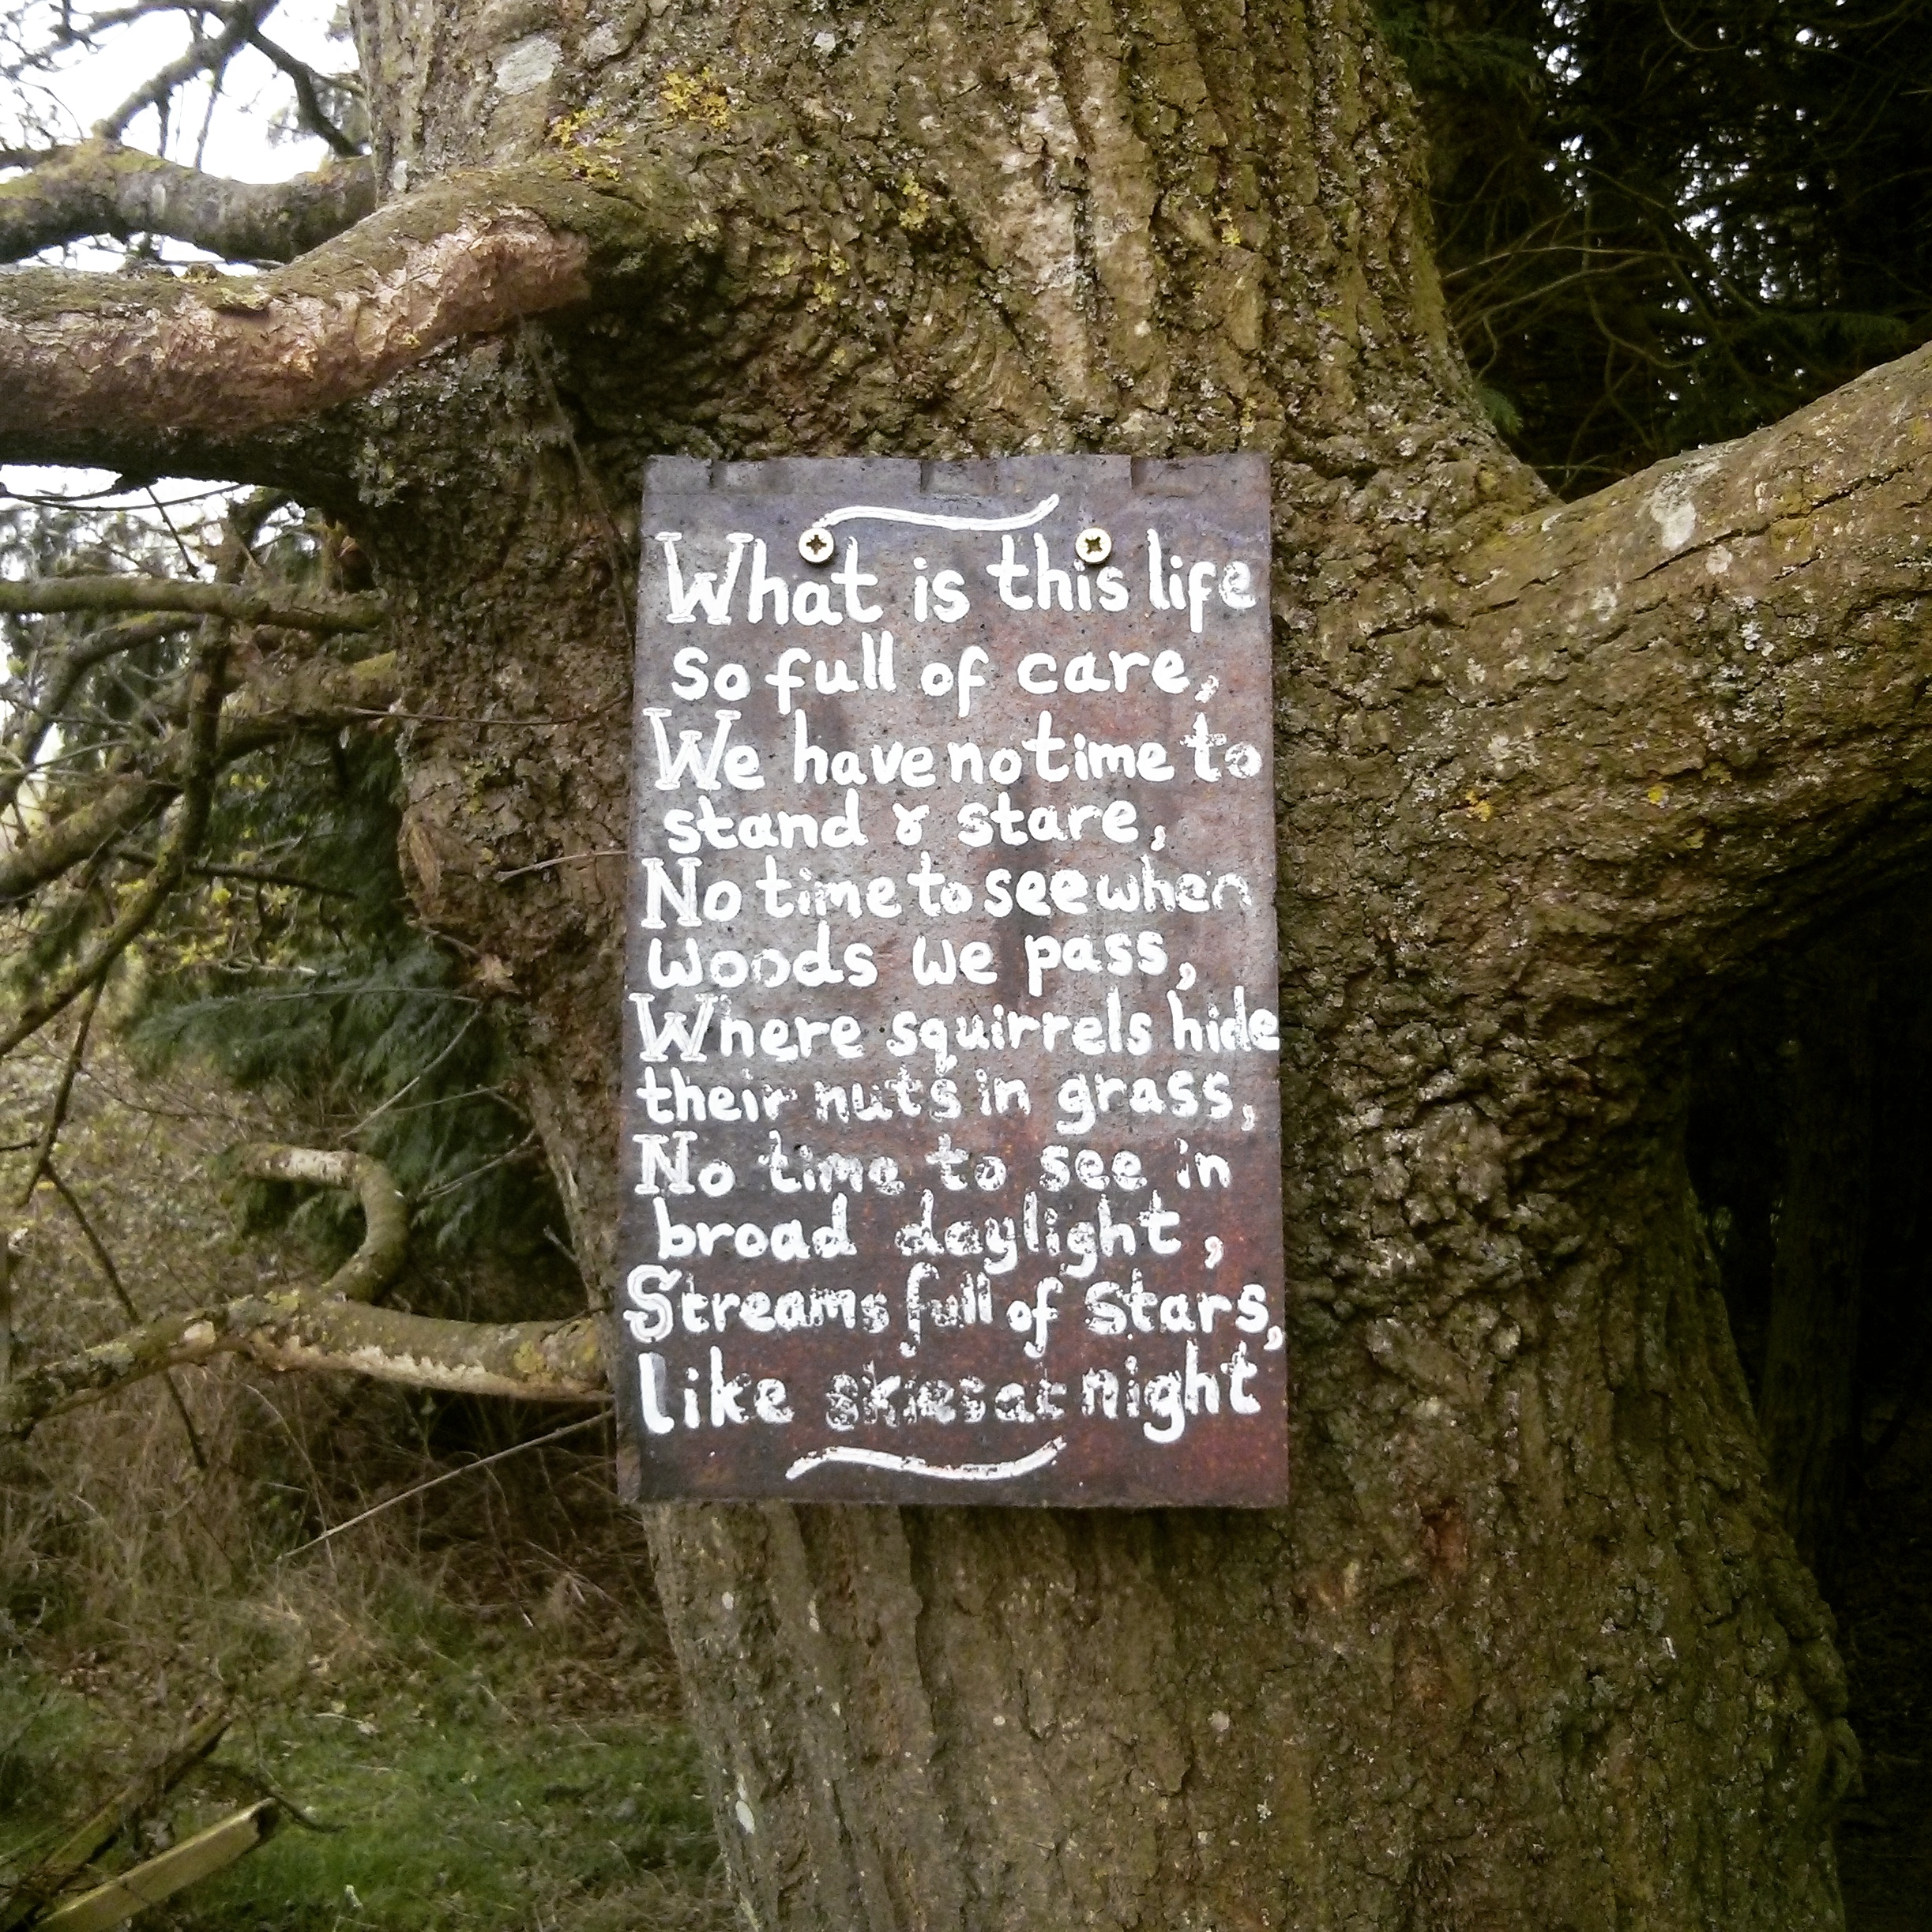 What is this life
so full of care,
We have no time to
stand & stare,
No time to see when
woods we pass,
Where squirrels hide
their nuts in grass,
No time to see in
broad daylight,
Streams full of stars,
like skies at night